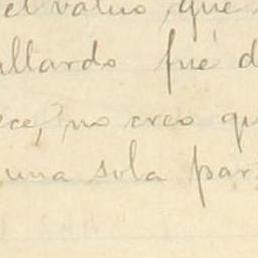 el valuo, que
allardo fué d
ece, no creo qu
una sola par